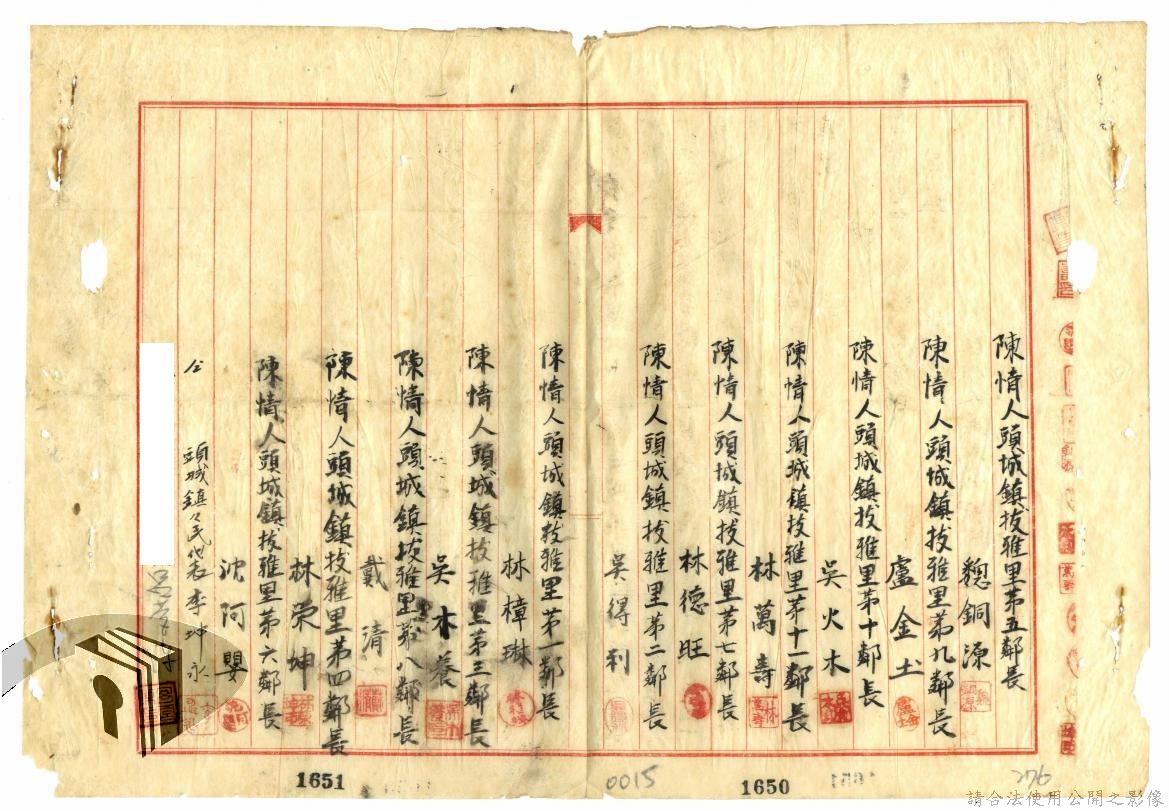 陳情人頭城鎮拔雅里第五鄰長
魏銅源
陳情人頭城鎮拔雅里第九鄰長
盧金土
陳情人頭城鎮拔雅里第十鄰長
吳火木
陳情人頭城鎮拔雅里第十一鄰長
林萬壽
陳情人頭城鎮拔雅里第七鄰長
林德旺
陳情人頭城鎮拔雅里第二鄰長
吳得利
陳情人頭城鎮拔雅里第一鄰長
林樟琳
陳情人頭城鎮拔雅里第三鄰長
吳木養
陳情人頭城鎮拔雅里第八鄰長
戴清
陳情人頭城鎮拔雅里第四鄰長
林榮坤
陳情人頭城鎮拔雅里第六鄰長
沈阿嬰
頭城鎮々民代表李坤永
1651
0015
1650
276
請合法使用公開之影像